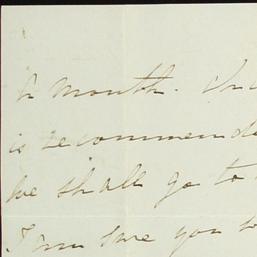 a month. In
is recommende
we shall go to
I am sure you